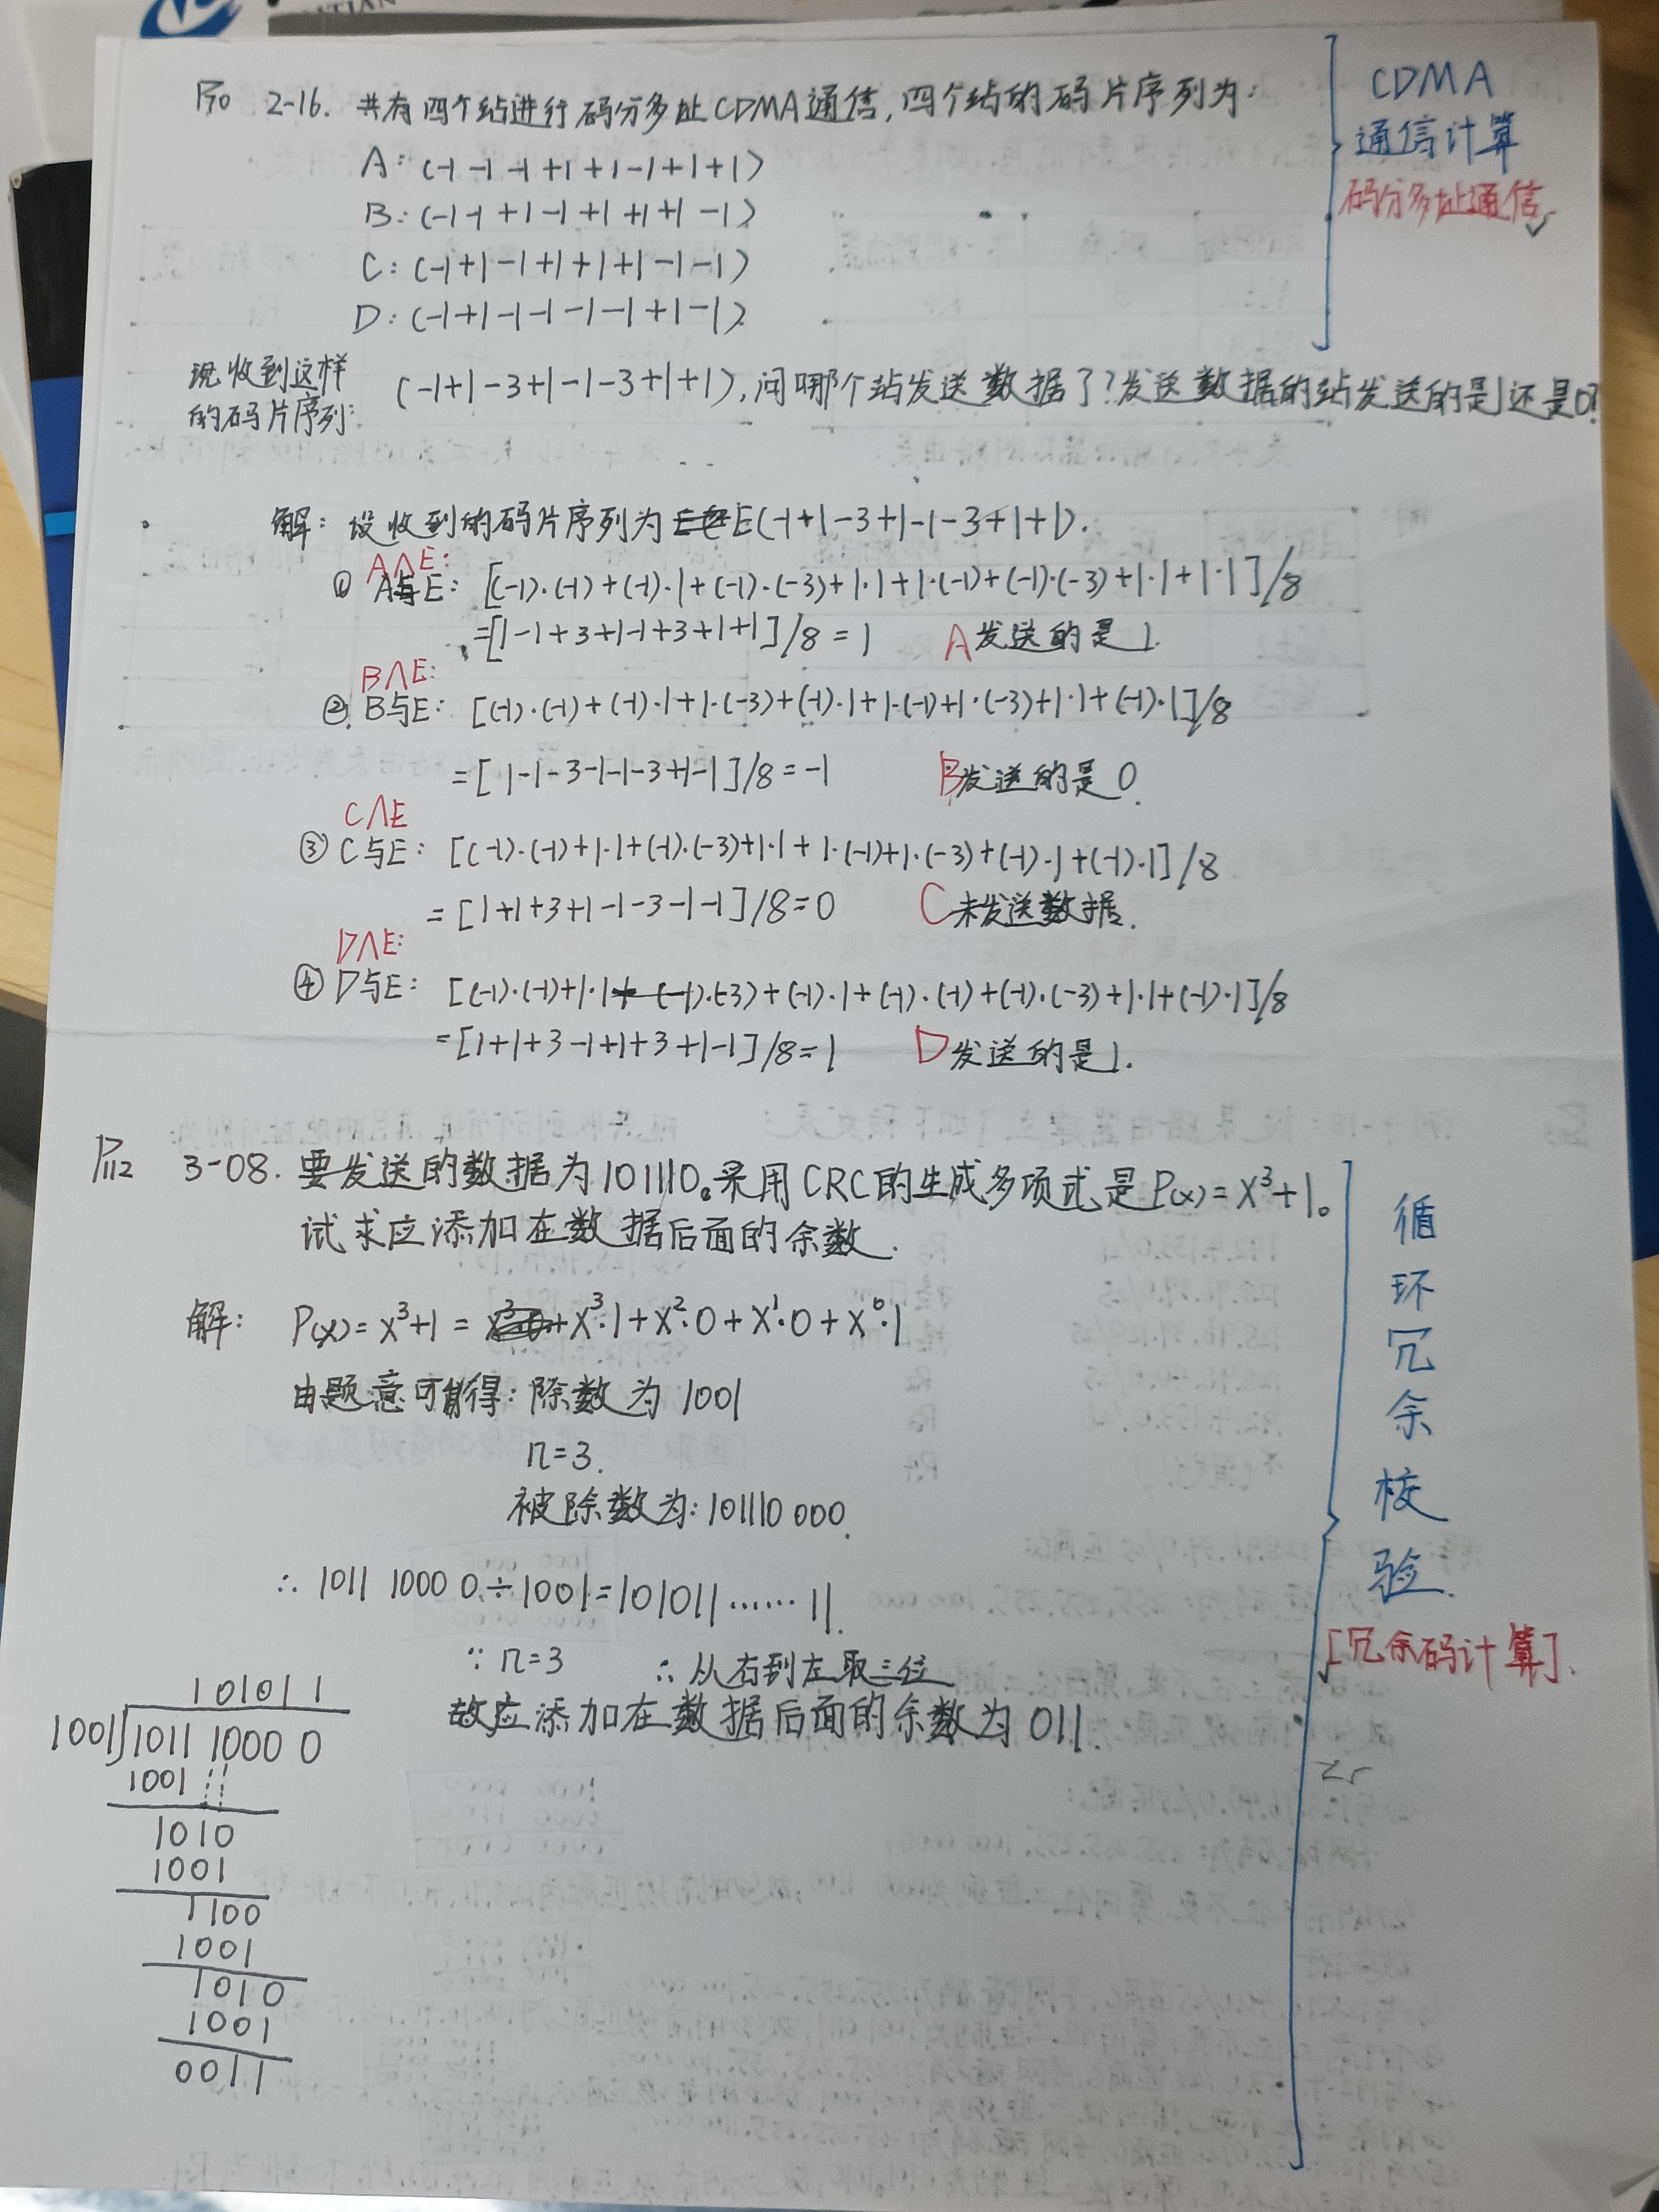 P70 2-16. 共有四个站进行码分多址CDMA通信,四个站的码片序列为:
A: (-1 -1 -1 +1 +1 -1 +1 +1)
B: (-1 -1 +1 -1 +1 +1 +1 -1)
C: (-1 +1 -1 +1 +1 +1 -1 -1)
D: (-1 +1 -1 -1 -1 -1 +1 -1)
现收到这样
的码片序列:
(-1 +1 -3 +1 -1 -3 +1 +1),问哪个站发送数据了?发送数据的站发送的是1还是0?
CDMA
通信计算
码分多址通信
解: 设收到的码片序列为E(-1 +1 -3 +1 -1 -3 +1 +1).
A∧E:
① A与E: [(-1)·(-1)+(-1)·1+(-1)·(-3)+1·1+1·(-1)+(-1)·(-3)+1·1+1·1]/8
=[1-1+3+1-1+3+1+1]/8=1 A发送的是1.
B∧E:
② B与E: [(-1)·(-1)+(-1)·1+1·(-3)+(-1)·1+1·(-1)+1·(-3)+1·1+(-1)·1]/8
=[1-1-3-1-1-3+1-1]/8=-1 B发送的是0.
C∧E
③ C与E: [(-1)·(-1)+1·1+(-1)·(-3)+1·1+1·(-1)+1·(-3)+(-1)·1+(-1)·1]/8
=[1+1+3+1-1-3-1-1]/8=0 C未发送数据.
D∧E:
④ D与E: [(-1)·(-1)+1·1+(-1)·(-3)+(-1)·1+(-1)·(-1)+(-1)·(-3)+1·1+(-1)·1]/8
=[1+1+3-1+1+3+1-1]/8=1 D发送的是1.
P112 3-08. 要发送的数据为101110。采用CRC的生成多项式是P(x)=X³+1。
试求应添加在数据后面的余数.
解: P(x)=X³+1=X³·1+X²·0+X¹·0+X⁰·1
由题意可得: 除数为 1001
n=3.
被除数为: 101110 000.
∴ 1011 1000 0÷1001=101011……11.
∵ n=3 ∴ 从右到左取三位
故应添加在数据后面的余数为011.
101011
1001 1011 1000 0
1001
1010
1001
1100
1001
1010
1001
0011
循
环
冗
余
校
验.
[冗余码计算].